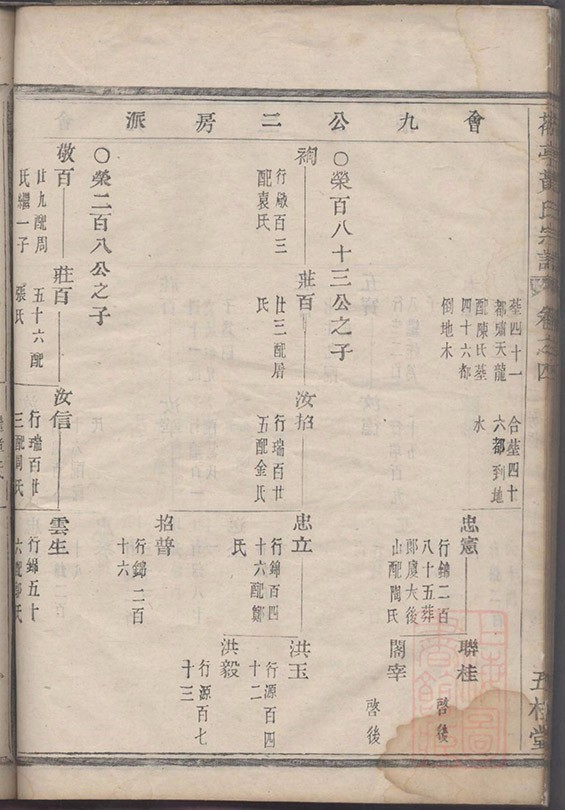 黃氏宗譜 卷之四
五桂堂
會九公二房派
塟四十一都嘯天龍
配陳氏塟四十六都倒地木
合塟四十六都到地木
忠憲
行錦二百八十五葬郎慶大後山配閔氏
聯桂
啓後
閣宰
啓後
○榮百八十三公之子
祹
行敬百三
配袁氏
莊百
廿三配屠氏
汝招
行瑞百廿五配金氏
忠立
行錦百四十六配鄭氏
洪玉
行源百四十二
洪毅
行源百七十三
招普
行錦二百十六
○榮二百八公之子
敬百
廿九配周氏繼一子
莊百
五十六配張氏
汝信
行瑞百廿三配周氏
雲生
行錦五十六配鄭氏